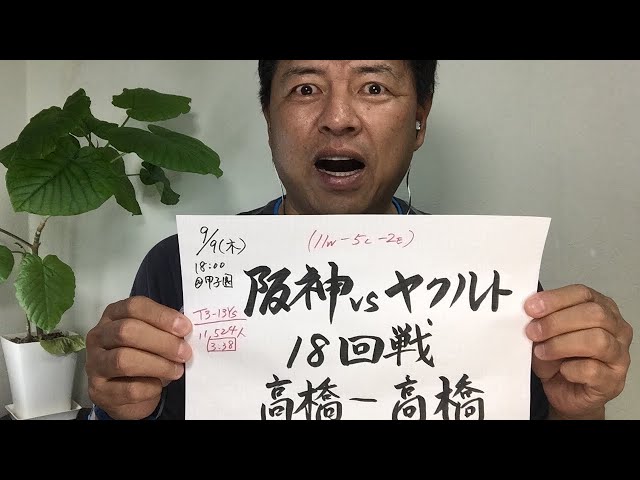 9/9(木)
18:00
@甲子園
T3-13Ys
11,524人
3:38
(11W-5L-2E)
阪神vsヤクルト
18回戦
高橋-高橋